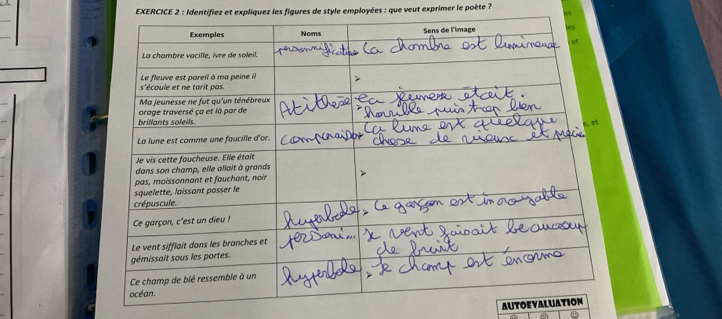 EXERCICE 2 : Identifiez et expliquez les figures de style employées : que veut exprimer le poète ?
Exemples Noms Sens de l'image
La chambre vacille, ivre de soleil. personnification La chambre est lumineuse
Le fleuve est pareil à ma peine il
s'écoule et ne tarit pas.
Ma jeunesse ne fut qu'un ténébreux
orage traversé ça et là par de
brillants soleils.
Atithèse La jeunesse était
horrible puis trop bien
La lune est comme une faucille d'or. Comparaison La lune est quelque
chose de vieux et
Je vis cette faucheuse. Elle était
dans son champ, elle allait à grands
pas, moissonnant et fauchant, noir
squelette, laissant passer le
crépuscule.
Ce garçon, c'est un dieu ! hyperbole Le garçon est incroyable
Le vent sifflait dans les branches et
gémissait sous les portes.
personi... Le vent faisait beaucoup
de bruit
Ce champ de blé ressemble à un
océan.
hyperbole Le champ est énorme
AUTOEVALUATION